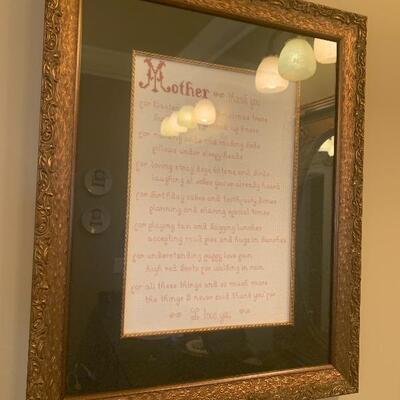 Mother thank you
for Easter
for
pillows under sleepy heads
for loving stray dogs kittens and birds
laughing at jokes you've already heard
for birthday cakes and
planning and sharing special times
for playing fair and bagging lunches
accepting mud pies and hugs in bunches
for understanding puppy love pain
high red boots for walking in rain
for all these things and so much more
the things I never said thank you for
I love you